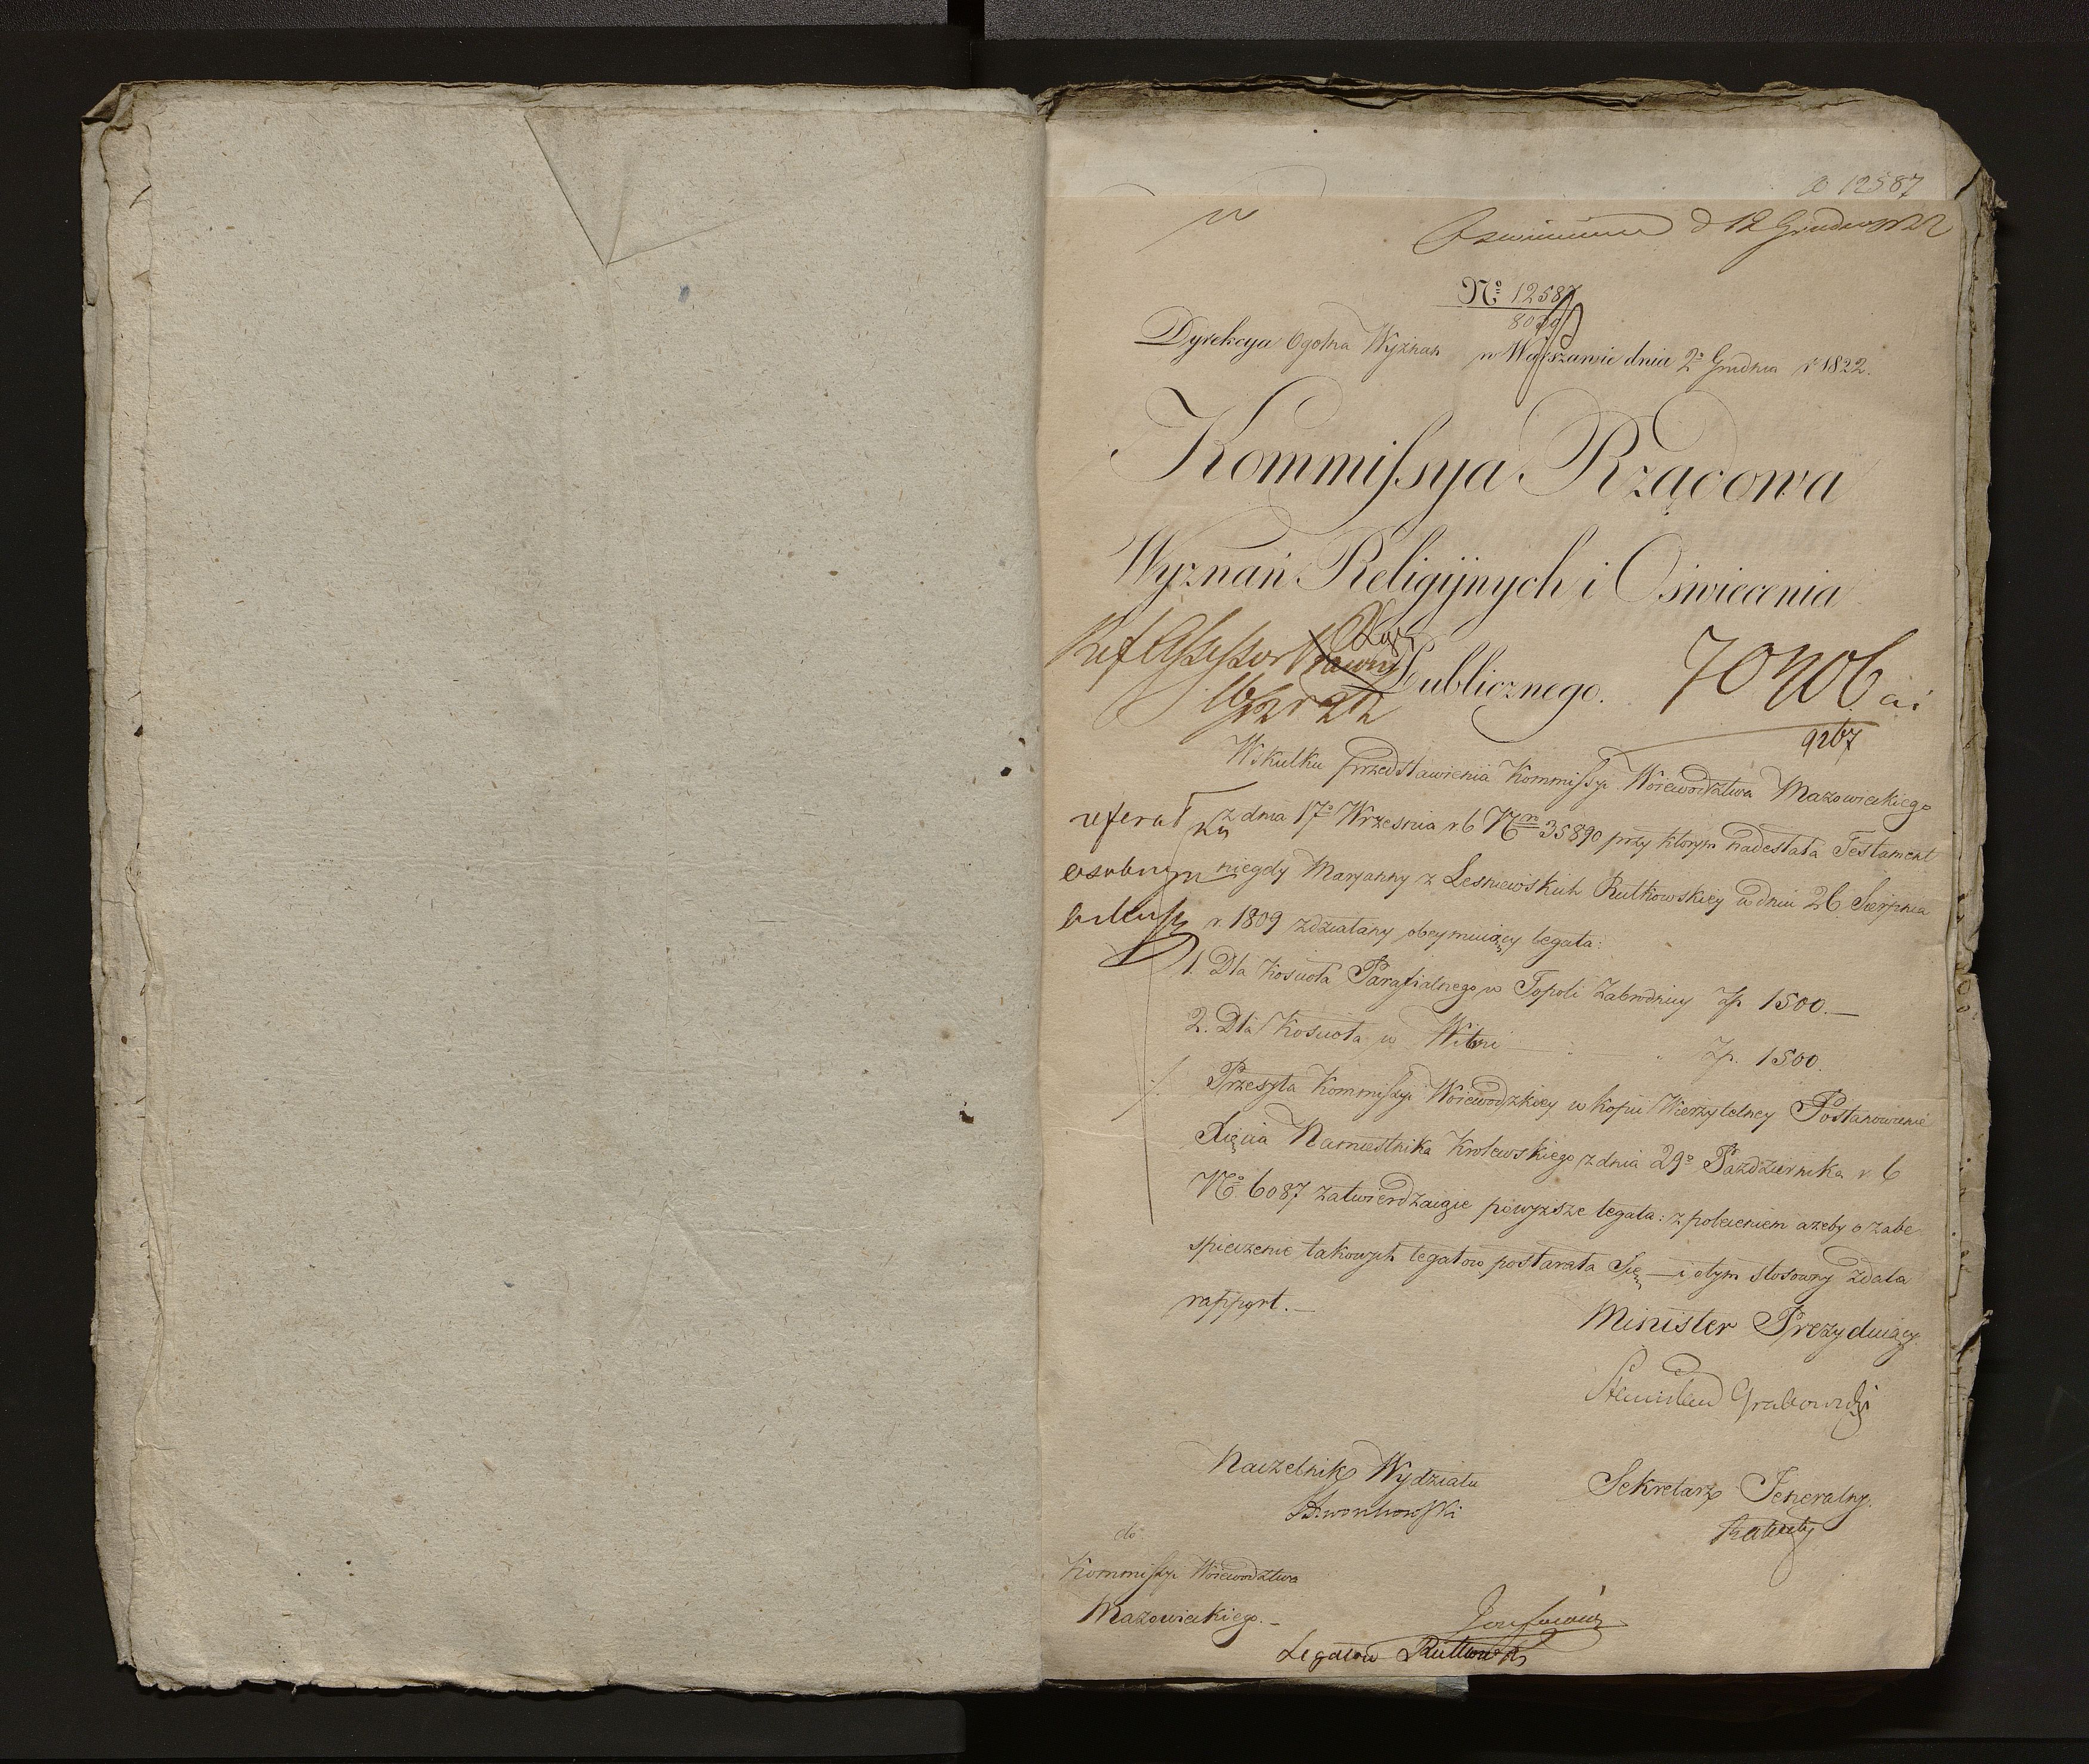 12587
d 12 Grudnia 1822
Nº 12587
Dyrekcya Ogolna Wyznań w Warszawie dnia 2º Grudnia r 1822.
Kommissya Rządowa
Wyznań Religijnych i Oświecenia
Publicznego.
70706
9267
Wskutku przedstawienia Kommissyi Woiewodztwa Mazowieckiego
z dnia 17º Wrzesnia r b Nro 35890 przy ktorym nadesłała Testament
niegdy Maryanny z Lesniewskich Rutkowskiey w dniu 26 Sierpnia
r. 1809 zdziałany obeymuiący legata:
referat na
osobnym
arkuszu
1. Dla Kościoła Parafialnego w Topoli Zabrodniey Zp 1500.—
2. Dla Kościoła w Witoni Zp. 1500.
Przesyła Kommissyi Woiewodzkiey w kopii Wierzytelney Postanowienie
Xięcia Namiestnika Krolewskiego z dnia 29º Pazdziernika r b
Nº 6087 zatwierdzaiące powyższe legata: z poleceniem ażeby o zabe
spieczenie takowych legatow postarała Się — i otym stosowny zdała
rapport.—
Minister Prezyduiący
Stanisław Grabowski
Naczelnik Wydziału
Sekretarz Jeneralny.
do
Kommissyi Woiewodztwa
Mazowieckiego.—
Legatow Rutkowski